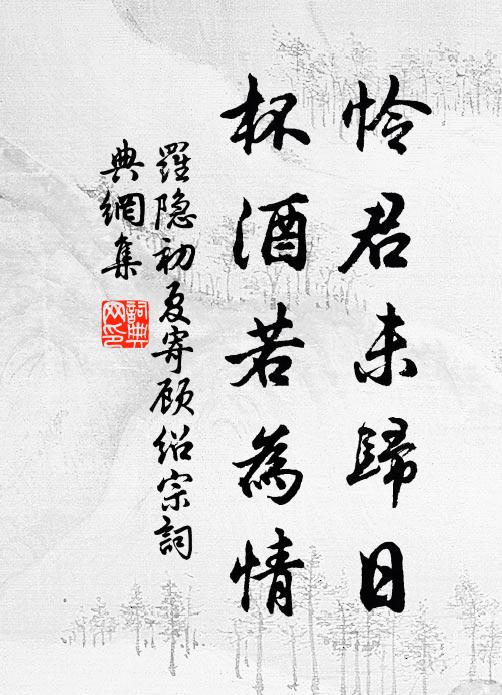 怜君未歸日
杯酒若為情
羅隐初夏寄顾绍宗詞
典網集
詞典
网印